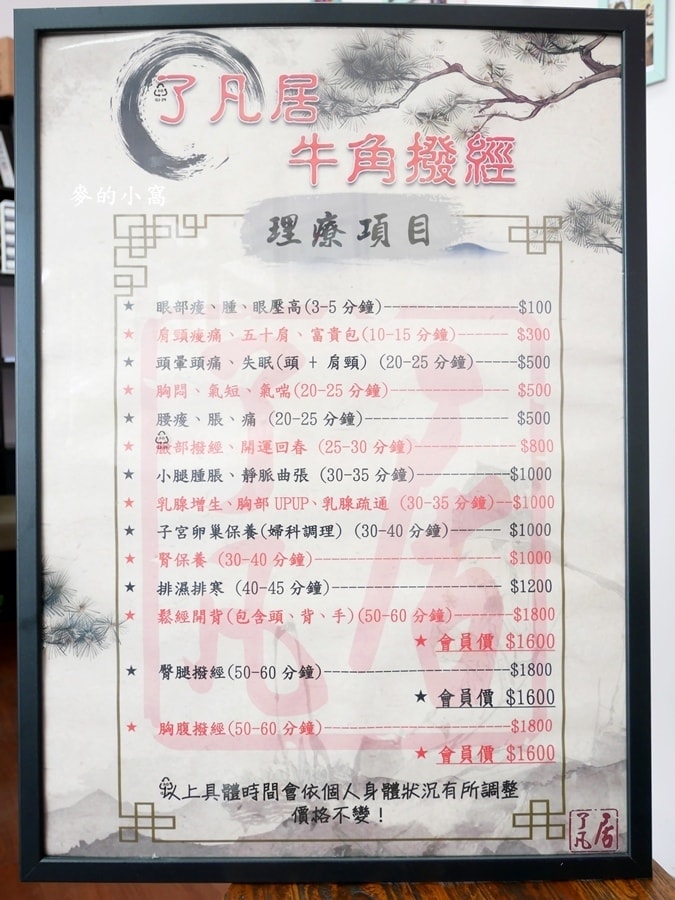 了凡居
牛角撥經
麥的小窩
理療項目
★ 眼部痠、腫、眼壓高(3-5分鐘)-----------------$100
★ 肩頸痠痛、五十肩、富貴包(10-15分鐘)------- $300
★ 頭暈頭痛、失眠(頭 + 肩頸) (20-25分鐘)-----$500
★ 胸悶、氣短、氣喘(20-25分鐘)--------------- $500
★ 腰痠、脹、痛 (20-25分鐘)------------------$500
★ 臉部撥經、開運回春 (25-30分鐘)------------- $800
★ 小腿腫脹、靜脈曲張 (30-35分鐘)------------$1000
★ 乳腺增生、胸部UPUP、乳腺疏通 (30-35分鐘)--$1000
★ 子宮卵巢保養(婦科調理) (30-40分鐘)------ $1000
★ 腎保養 (30-40分鐘)------------------------ $1000
★ 排濕排寒 (40-45分鐘)---------------------- $1200
★ 鬆經開背(包含頭、背、手)(50-60分鐘)-------$1800
★ 會員價 $1600
★ 臀腿撥經(50-60分鐘)-----------------------$1800
★ 會員價 $1600
★ 胸腹撥經(50-60分鐘)-----------------------$1800
★ 會員價 $1600
以上具體時間會依個人身體狀況有所調整
價格不變！
了凡居